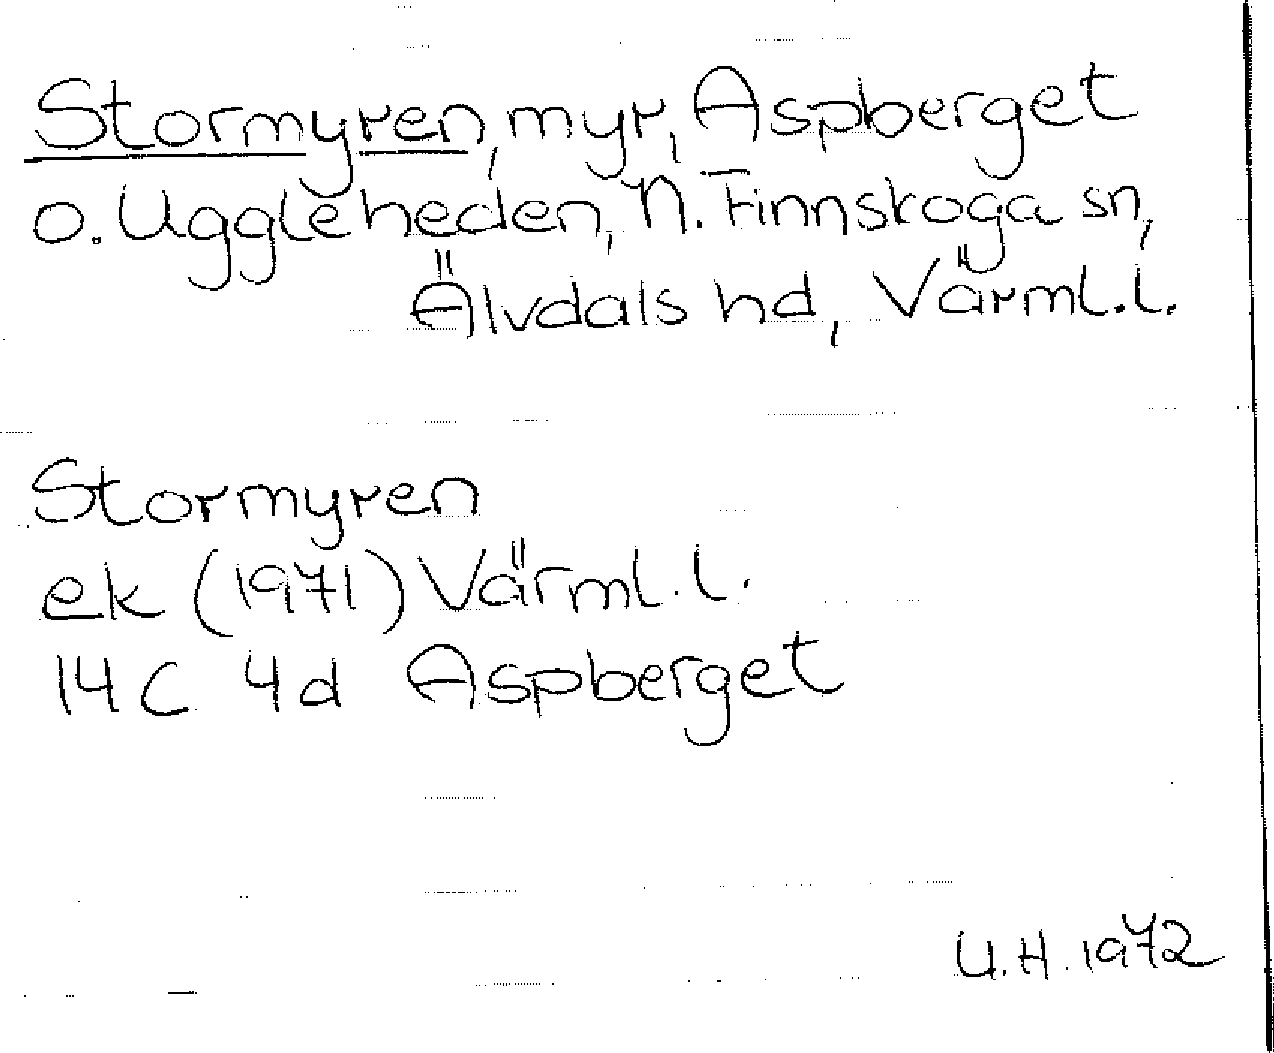 Stormyren, myr, Aspberget
o. Uggleheden, N. Finnskoga sn,
Älvdals hd, Värml.l.
Stormyren
ek (1971) Värml.l.
14C 4d Aspberget
U.H. 1972